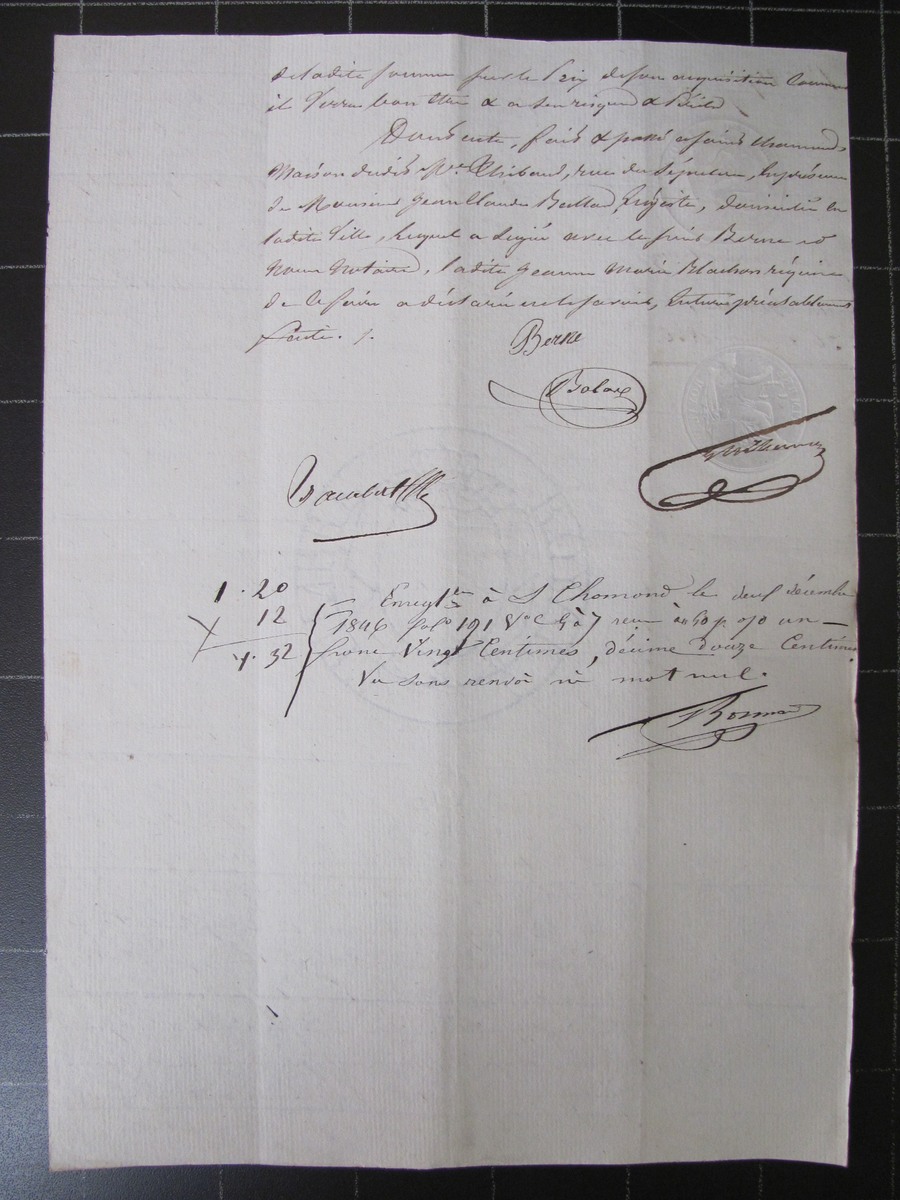 de ladite somme sur le Prix de son acquisition comme
il verra bon être & a ses risques & Périls
Dont acte, fait & passé a saint Chamond,
Maison dudit Me Thibaud, rue du Sépulcre, En présence
de Monsieur Jean Claude domicilié en
ladite Ville, Lequel a signé avec ledit Berne &
Nous Notaire, ladite Jeanne Marie Blachon requise
de le faire a déclaré ne le savoir, Lecture préalablement
faite. /.
Berne
1 . 20
12
1 . 32
Enregtré à St Chamond le deux décembre
1846 fol 191 Vo C 5 à 7 reçu à 50 p. 0/0 un
franc Vingt Centimes, décime Douze Centimes
Vu sans renvoi ni mot nul.